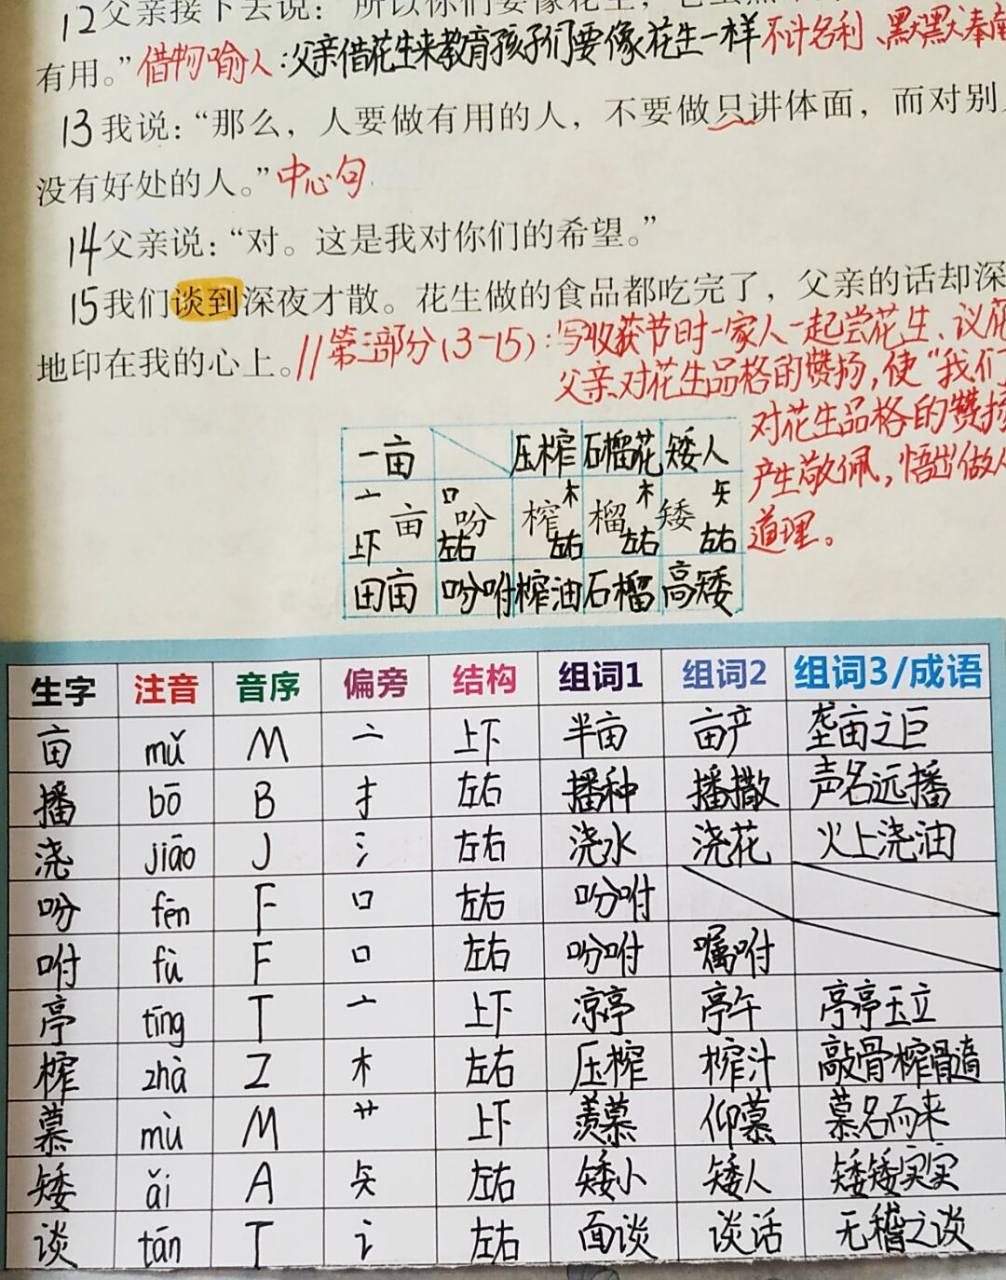 12父亲接下去说：“所以你们要像花生，
有用。”借物喻人：父亲借花生来教育孩子们要像花生一样不计名利、默默奉
13我说：“那么，人要做有用的人，不要做只讲体面，而对别
没有好处的人。”中心句
14父亲说：“对。这是我对你们的希望。”
15我们谈到深夜才散。花生做的食品都吃完了，父亲的话却深
地印在我的心上。//第三部分(3-15)：写收获节时一家人一起尝花生、议
父亲对花生品格的赞扬，使“我们
对花生品格的赞扬
产生敬佩，悟出做人
道理。
一亩 压榨 石榴花 矮人
亠 亩 上下 口 吩 左右 木 榨 左右 木 榴 左右 矢 矮 左右
田亩 吩咐 榨油 石榴 高矮
生字 注音 音序 偏旁 结构 组词1 组词2 组词3/成语
亩 mǔ M 亠 上下 半亩 亩产 垄亩之臣
播 bō B 扌 左右 播种 播撒 声名远播
浇 jiāo J 氵 左右 浇水 浇花 火上浇油
吩 fēn F 口 左右 吩咐
咐 fù F 口 左右 吩咐 嘱咐
亭 tīng T 亠 上下 凉亭 亭午 亭亭玉立
榨 zhà Z 木 左右 压榨 榨汁 敲骨榨髓
慕 mù M 艹 上下 羡慕 仰慕 慕名而来
矮 ǎi A 矢 左右 矮小 矮人 矮矮实实
谈 tán T 讠 左右 面谈 谈话 无稽之谈